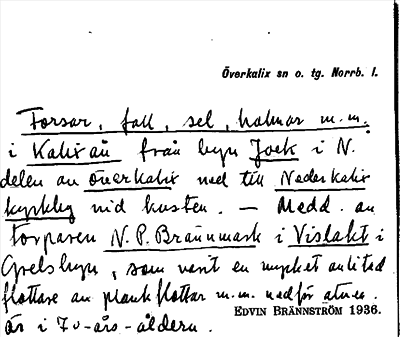 Överkalix sn o. tg. Norrb. l.
Forsar, fall, sel, holmar m.m.
i Kalix älv från byn Jock i N.
delen av Överkalix ned till Nederkalix
kyrkby vid kusten. — Medd. av
torparen N. P. Brännmark i Vislakt i
Grelsbyn, som varit en mycket anlitad
flottare av plankflottar m.m. nedför älven.
Är i 70-års-åldern.
EDVIN BRÄNNSTRÖM 1936.